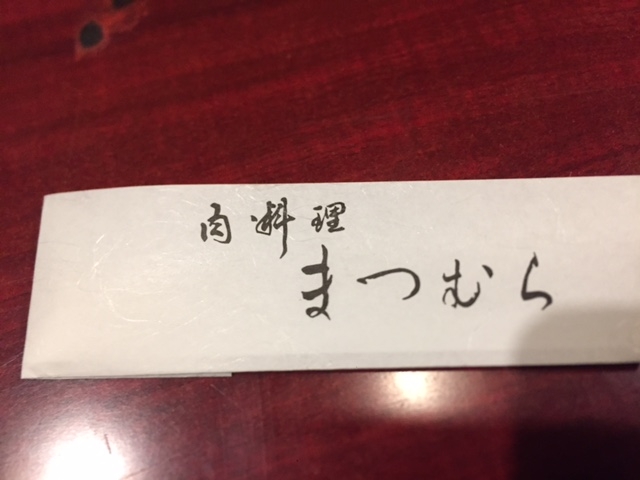 肉料理
まつむら